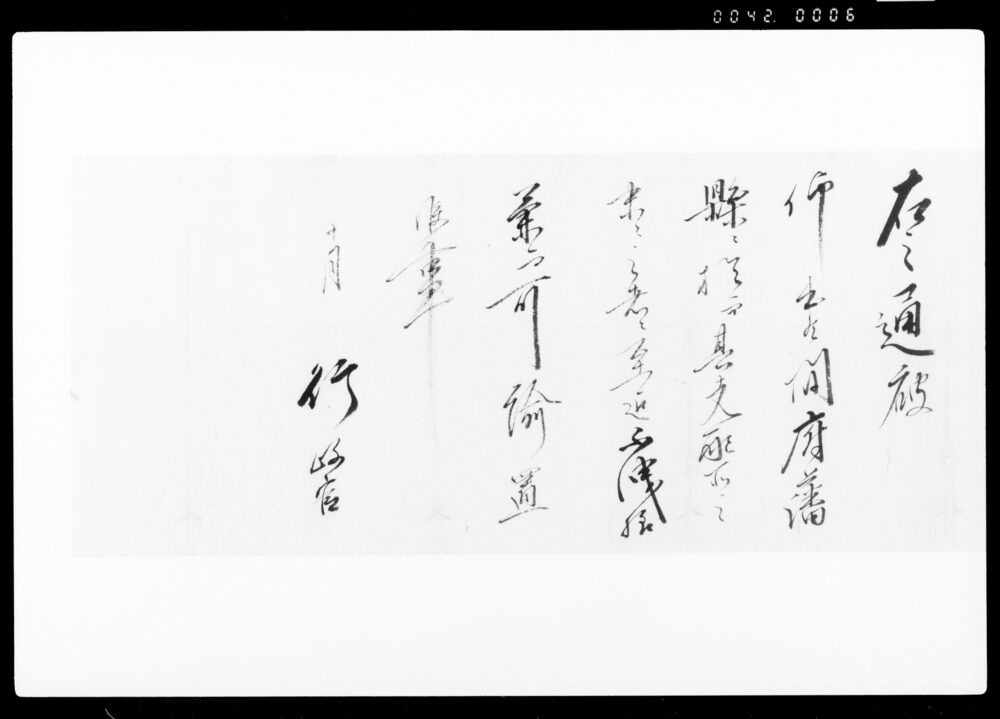 0042. 0006
右之通被
仰出候間府藩
縣ニ於而其支配所之
末々之者ニ至迄不洩様
兼而可諭置
候事
十月 行政官